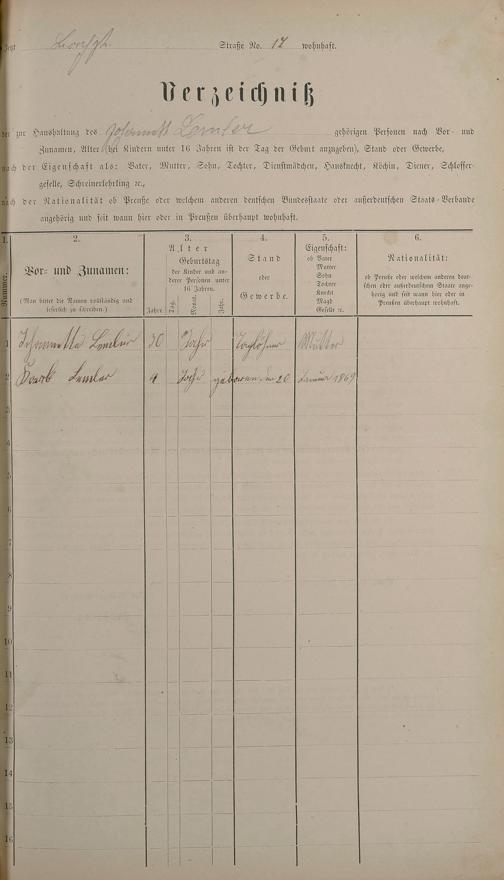 Straße No. 17 wohnhaft.
Verzeichniß
der zur Haushaltung des Johannette Lemler gehörigen Personen nach Vor- und
Zunamen, Alter (bei Kindern unter 16 Jahren ist der Tag der Geburt anzugeben), Stand oder Gewerbe,
nach der Eigenschaft als: Vater, Mutter, Sohn, Tochter, Dienstmädchen, Hausknecht, Köchin, Diener, Schlosser-
geselle, Schreinerlehrling ꝛc.,
nach der Nationalität ob Preuße oder welchem anderen deutschen Bundesstaate oder außerdeutschen Staats-Verbande
angehörig und seit wann hier oder in Preußen überhaupt wohnhaft.
1. 2. 3. 4. 5. 6.
Nummer.
Vor- und Zunamen:
(Man bittet die Namen vollständig und
leserlich zu schreiben.)
Alter
Geburtstag
der Kinder und an-
derer Personen unter
16 Jahren.
Jahre Tag. Monat. Jahr.
Stand
oder
Gewerbe.
Eigenschaft:
ob Vater
Mutter
Sohn
Tochter
Knecht
Magd
Geselle ꝛc.
Nationalität:
ob Preuße oder welchem anderen deut-
schen oder außerdeutschen Staate ange-
hörig und seit wann hier oder in
Preußen überhaupt wohnhaft.
1 Johannette Lemler 30 Jahr Taglöhner Mutter
2 Lemler 4 Jahr geboren den 20 Januar 1869
3
4
5
6
7
8
9
10
11
12
13
14
15
16